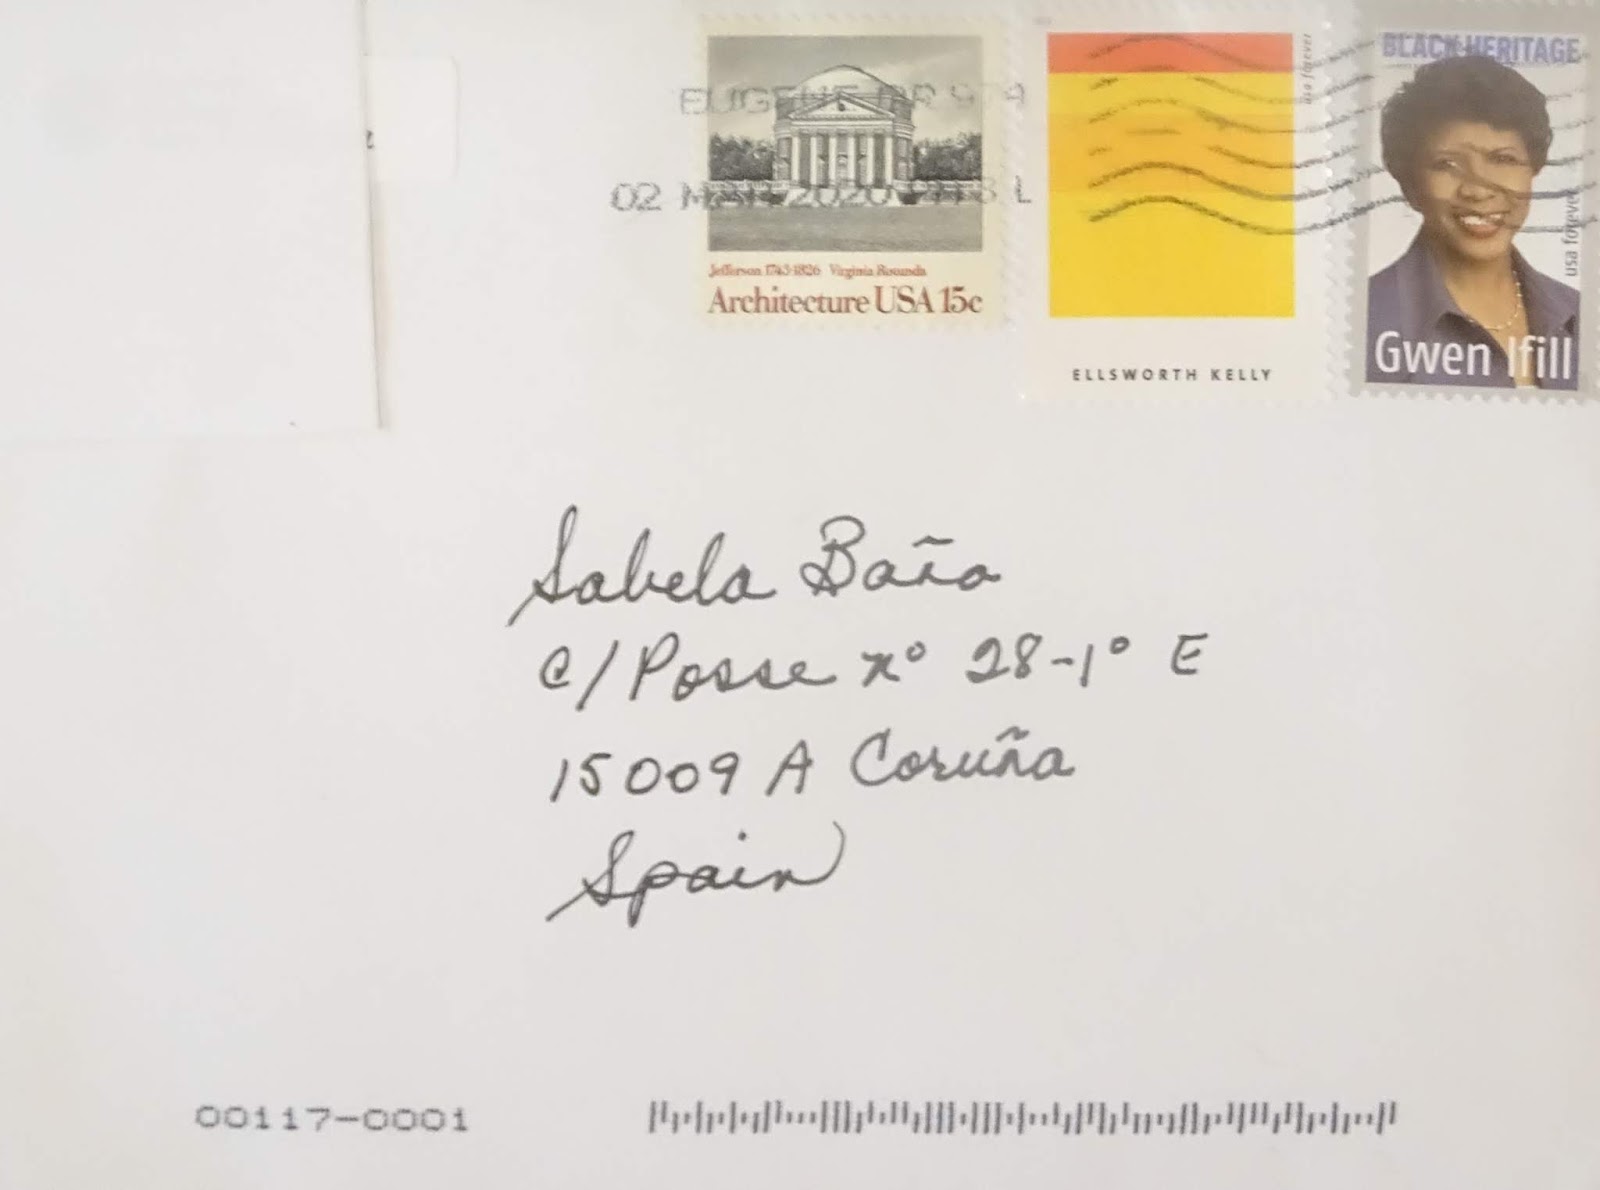 EUGENE OR 974
02 MAR 2020 PM 3 L
Jefferson 1743-1826 Virginia Rotunda
Architecture USA 15c
usa forever
ELLSWORTH KELLY
BLACK HERITAGE
usa forever
Gwen Ifill
Sabela Baño
c/Posse nº 28-1º E
15009 A Coruña
Spain
00117-0001